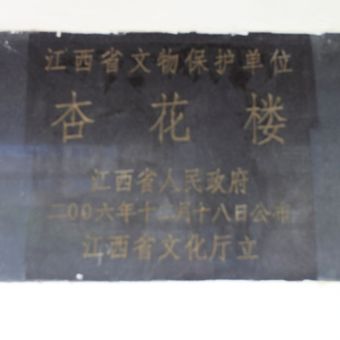 江西省文物保护单位
杏花楼
江西省人民政府
二〇〇六年十二月十八日公布
江西省文化厅立